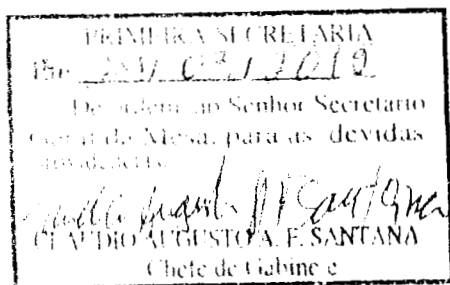 PRIMEIRA SECRETARIA
De ordem, ao Senhor Secretário
Geral da Mesa, para as devidas
providências.
CLAUDIO AUGUSTO A. F. SANTANA
Chefe de Gabinete